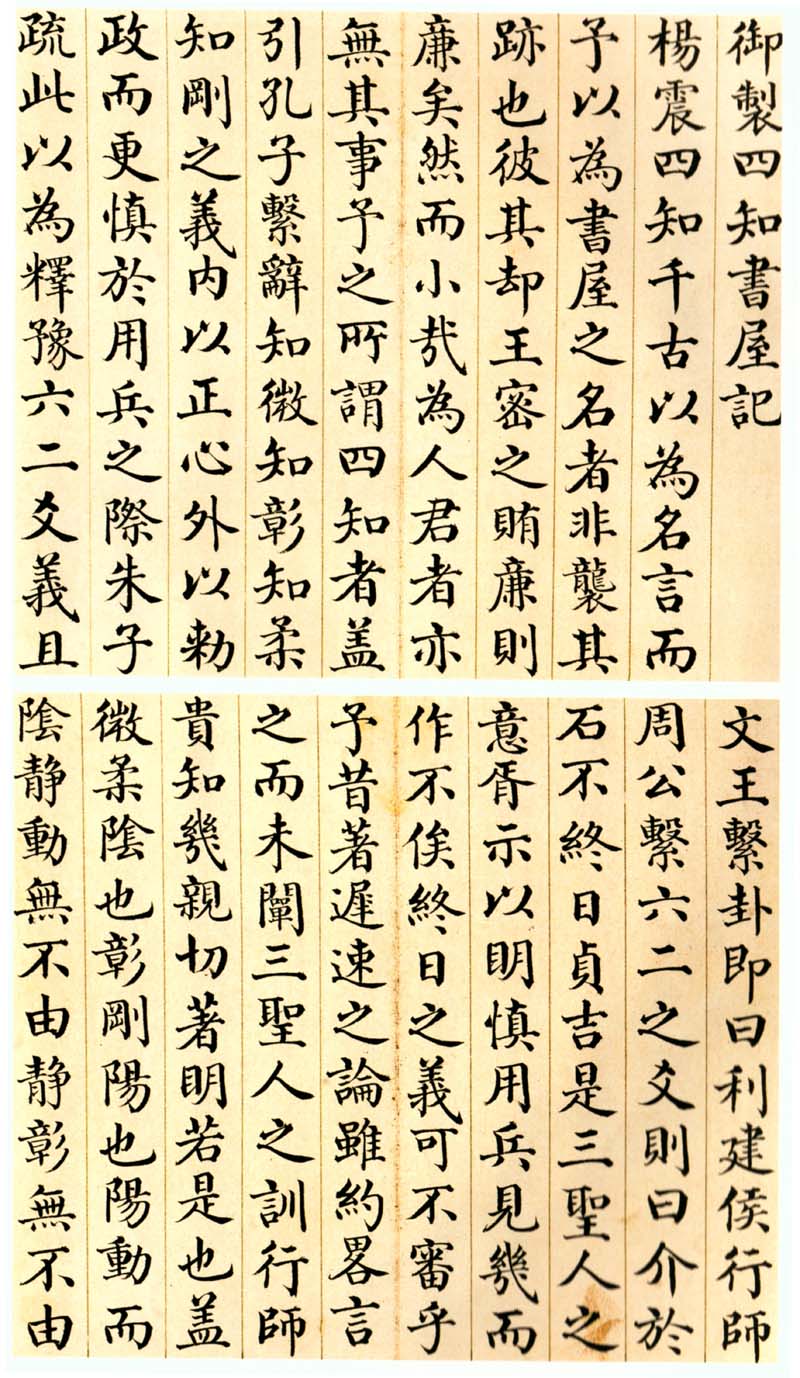 御製四知書屋記
楊震四知千古以為名言而
予以為書屋之名者非襲其
跡也彼其却王密之賄廉則
廉矣然而小哉為人君者亦
無其事予之所謂四知者盖
引孔子繫辭知微知彰知柔
知剛之義内以正心外以勅
政而更慎於用兵之際朱子
疏此以為釋豫六二爻義且
文王繫卦即曰利建侯行師
周公繫六二之爻則曰介於
石不終日貞吉是三聖人之
意胥示以明慎用兵見幾而
作不俟終日之義可不審乎
予昔著遲速之論雖約畧言
之而未闡三聖人之訓行師
貴知幾親切著明若是也盖
微柔陰也彰剛陽也陽動而
陰静動無不由静彰無不由